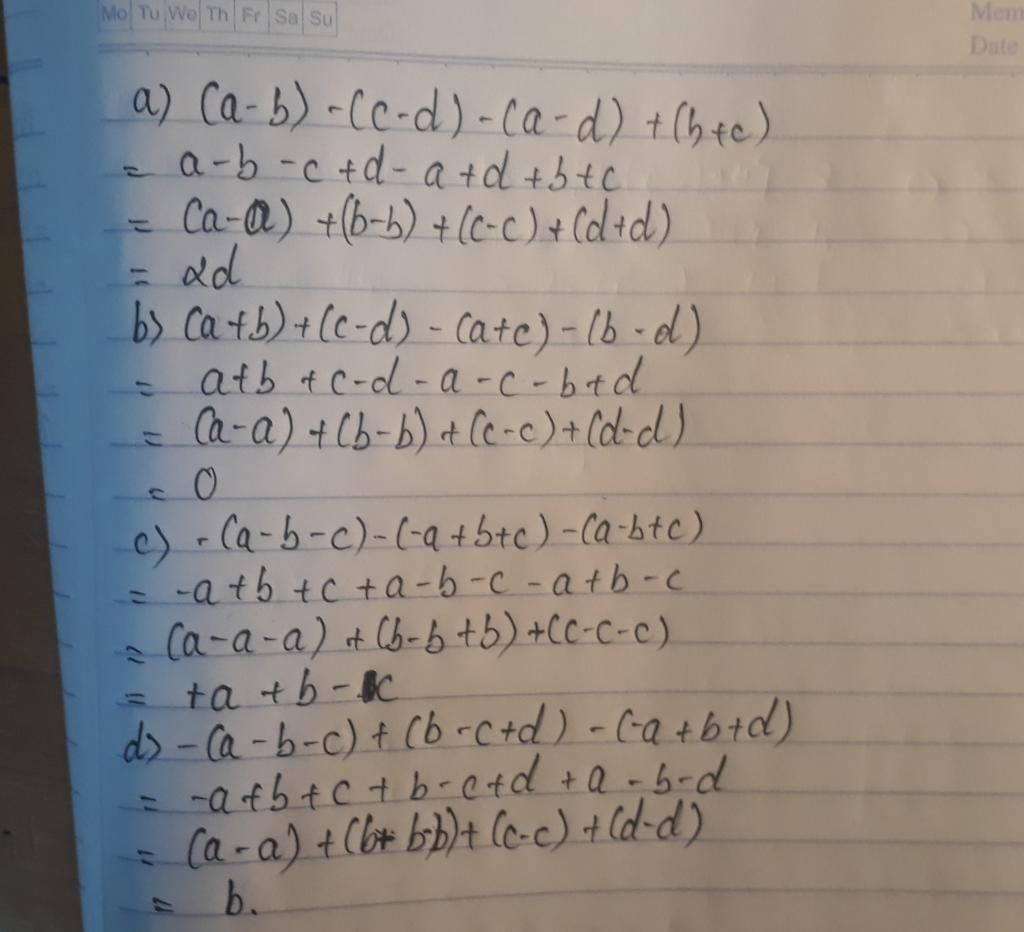 Mo Tu We Th Fr Sa Su
Mem
Date
a) (a-b) -(c-d) -(a-d) +(b+c)
= a-b -c +d- a +d +b+c
= (a-a) +(b-b) +(c-c) +(d+d)
= 2d
b) (a+b)+(c-d) -(a+c)-(b-d)
= a+b +c-d-a-c-b+d
= (a-a) +(b-b) +(c-c)+(d-d)
= 0
c) -(a-b-c)-(-a+b+c)-(a-b+c)
= -a+b+c+a-b-c-a+b-c
= (a-a-a) +(b-b+b)+(c-c-c)
= +a +b -c
d) -(a-b-c)+(b-c+d)-(-a+b+d)
= -a+b+c+b-c+d+a-b-d
= (a-a)+(b+b-b)+(c-c)+(d-d)
= b.